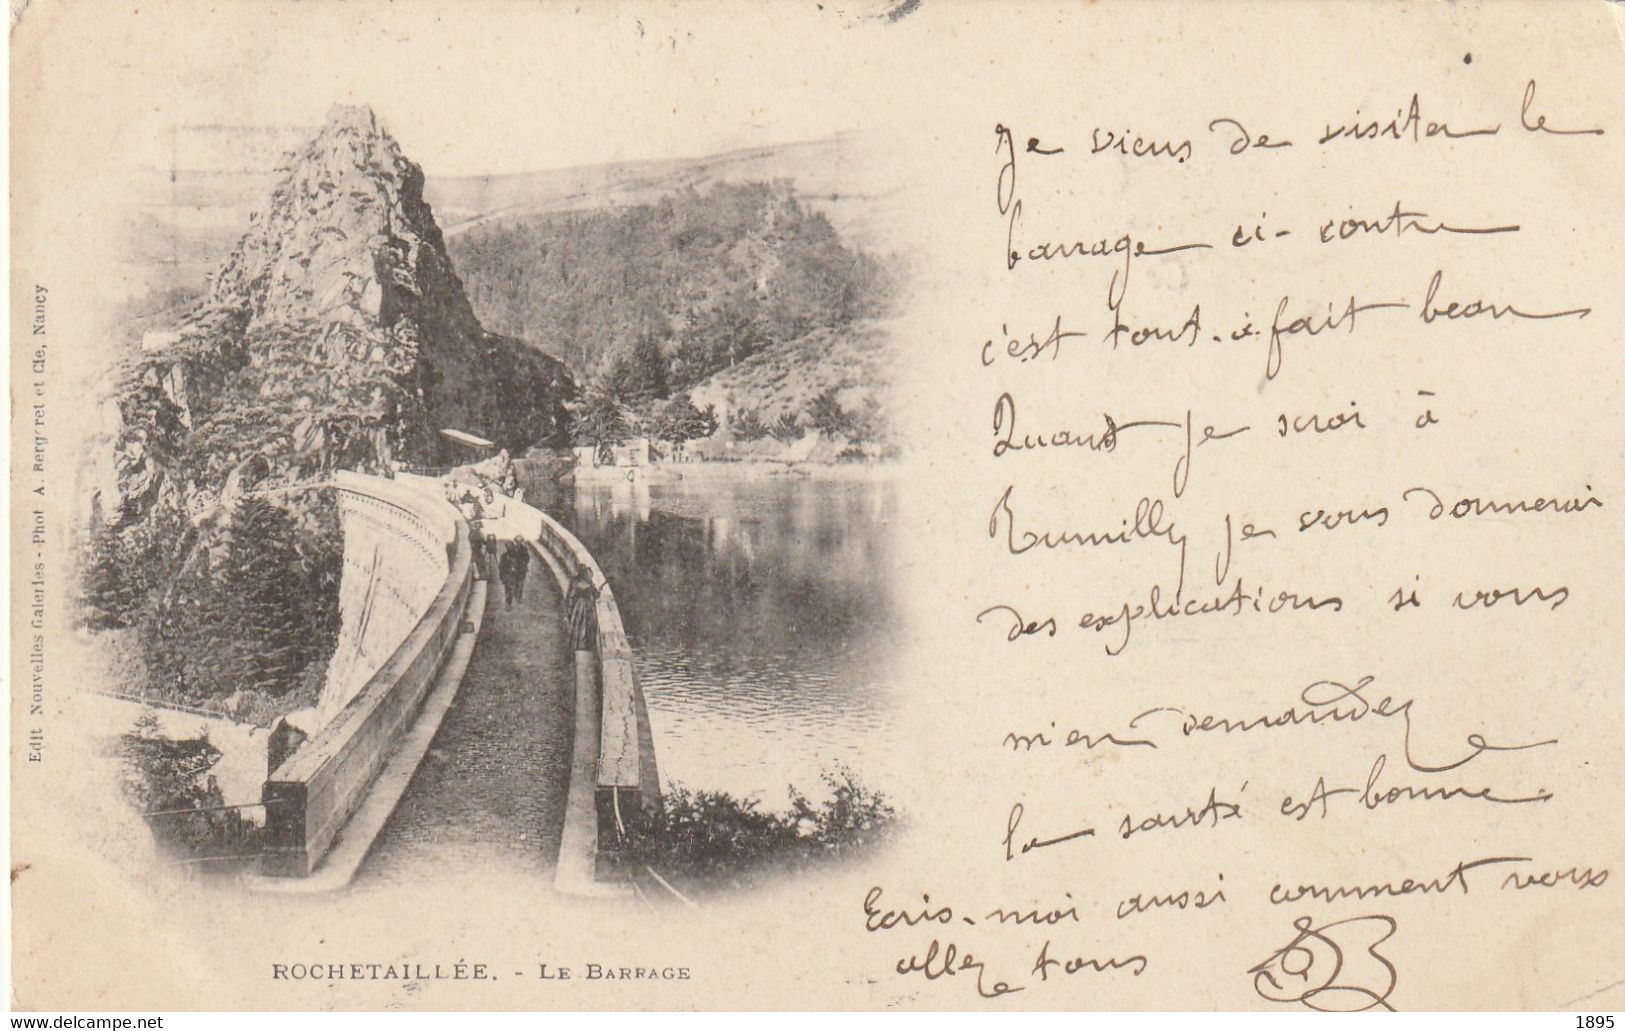 Je viens de visiter le
barrage ci-contre
c'est tout-à-fait beau
Quand je serai à
Rumilly je vous donnerai
des explications si vous
m'en demandez
la santé est bonne.
Ecris-moi aussi comment vous
allez tous
Edit Nouvelles Galeries - Phot A. Bergeret et Cie, Nancy
ROCHETAILLÉE. - LE BARRAGE
website:delcampe.net
1895